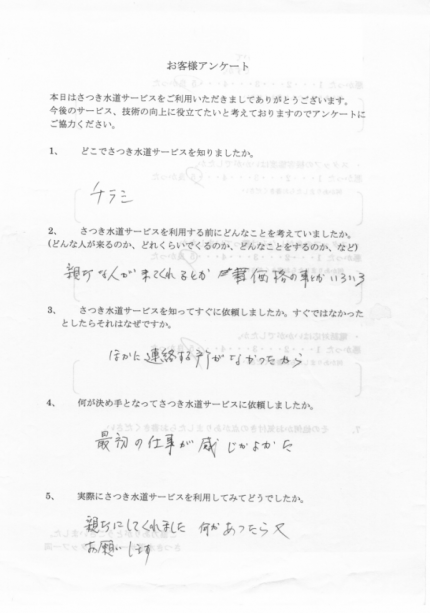 お客様アンケート
本日はさつき水道サービスをご利用いただきましてありがとうございます。
今後のサービス、技術の向上に役立てたいと考えておりますのでアンケートに
ご協力ください。
1、 どこでさつき水道サービスを知りましたか。
チラシ
2、 さつき水道サービスを利用する前にどんなことを考えていましたか。
(どんな人が来るのか、どれくらいでくるのか、どんなことをするのか、など)
親切な人が来てくれるとか 価格の事とかいろいろ
3、 さつき水道サービスを知ってすぐに依頼しましたか。すぐではなかった
としたらそれはなぜですか。
ほかに連絡する所がなかったから
4、 何が決め手となってさつき水道サービスに依頼しましたか。
最初の仕事が感じがよかた
5、 実際にさつき水道サービスを利用してみてどうでしたか。
親切にしてくれました 何かあったら又
お願いします